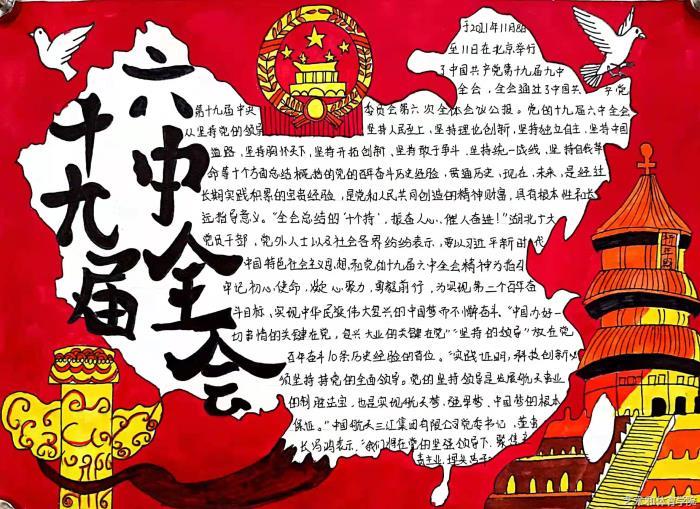 十九届
六中全会
于2021年11月8日
至11日在北京举行
了中国共产党第十九届九中
全会，全会通过了中国共产党
第十九届中央委员会第六次全体会议公报。党的十九届六中全会
从坚持党的领导坚持人民至上，坚持理论创新，坚持独立自主，坚持中国
道路，坚持胸怀天下，坚持开拓创新，坚持敢于斗争，坚持统一战线，坚持自我革
命等十个方面总结概括的党的百年奋斗历史经验，贯通历史，现在，未来，是经过
长期实践积累的宝贵经验，是党和人民共同创造的精神财富，具有根本性和长
远指导意义。“全会总结的‘十个持’，振奋人心，催人奋进！”湖北广大
党员干部，党外人士以及社会各界纷纷表示，要以习近平新时代
中国特色社会主义思想和党的十九届六中全会精神为指引
牢记初心使命，凝定心聚力，勇毅前行，为实现第二个百年奋
斗目标，实现中华民族伟大复兴的中国梦而不懈奋斗。“中国办好一
切事情的关键在党，复兴大业的关键在党”“坚持的领导”放在党
百年奋斗10条历史经验的首位。“实践证明，科技创新必
须坚持持党的全面领导。党的坚持领导是发展航天事业
的制胜法宝，也是实现航天梦，强军梦，中国梦的根本
保证。”中国航天三江集团有限公司党委书记，董事
长冯鸿表示，“我们将在党的坚强领导下，聚焦主
责主业，埋头苦干